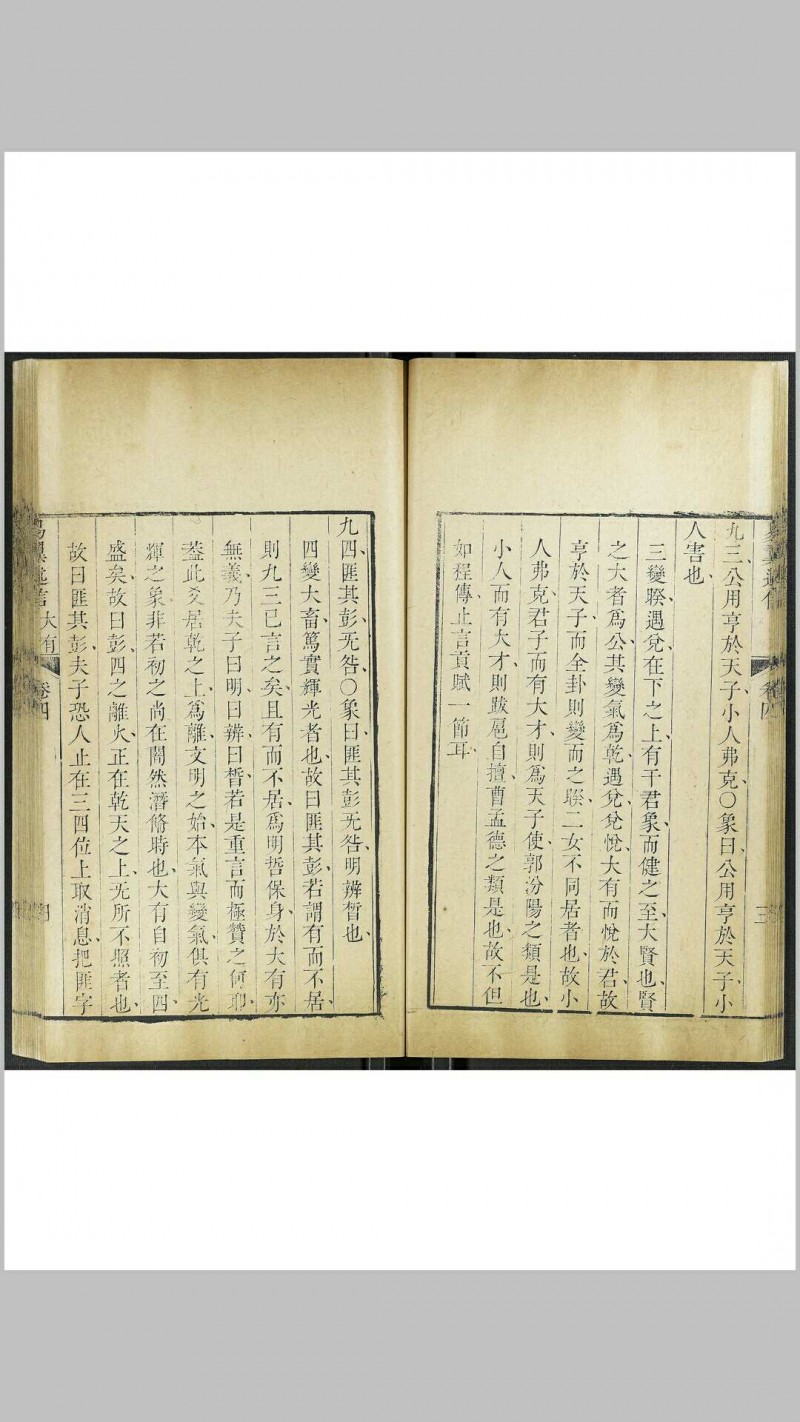 九三、公用亨於天子、小人弗克、〇象曰、公用亨於天子、小
人害也、
三變睽、遇兌在下之上、有干君象、而健之至、大賢也、賢
之大者爲公、其變氣爲乾、遇兌、兌悅、大有而悅於君、故
亨於天子、而全卦則變而之睽、二女不同居者也、故小
人弗克、君子而有大才、則爲天子使、郭汾陽之類是也、
小人而有大才、則跋扈自擅、曹孟德之類是也、故不但
如程傳、止言貢賦一節耳、
卷四
三
九四、匪其彭、无咎、〇象曰、匪其彭、无咎、明辨晳也、
四變大畜、篤實輝光者也、故曰匪其彭、若謂有而不居、
則九三已言之矣、且有而不居、爲明哲保身、於大有亦
無義、乃夫子曰明、曰辨、曰晳、若是重言而極贊之、何耶、
葢此爻居乾之上、爲離、文明之始、本氣與變氣、俱有光
輝之象、非若初之尚在闇然潛脩時也、大有自初至四、
盛矣、故曰彭、四之離火、正在乾天之上、无所不照者也、
故曰匪其彭、夫子恐人止在三四位上取消息、把匪字
易翼述信 大有 卷四